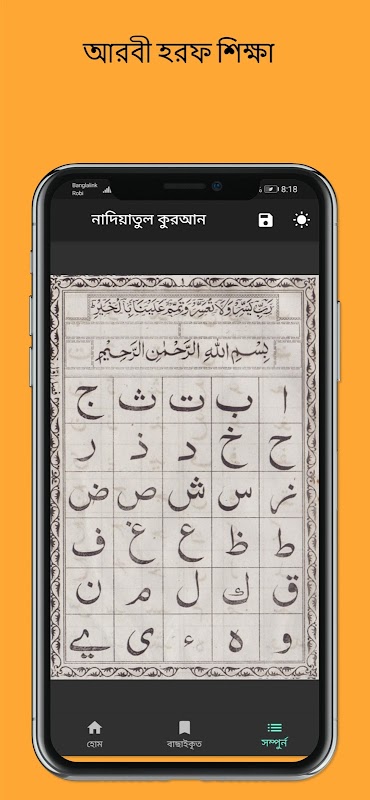 আরবী হরফ শিক্ষা
Banglalink
Robi
8:18
নাদিয়াতুল কুরআন
رَبِّ يَسِّرْ وَلَا تُعَسِّرْ وَتَمِّمْ عَلَيْنَا بِالْخَيْرِ
بِسْمِ اللهِ الرَّحْمٰنِ الرَّحِيْمِ
ا ب ت ث ج
ح خ د ذ ر
ز س ش ص ض
ط ظ ع غ ف
ق ك ل م ن
و ه ء ی ے
হোম
বাছাইকৃত
সম্পুর্ন